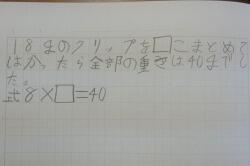 1こ8gのクリップを□こまとめて
はかったら全部の重さは40gでし
た。
式8×□=40